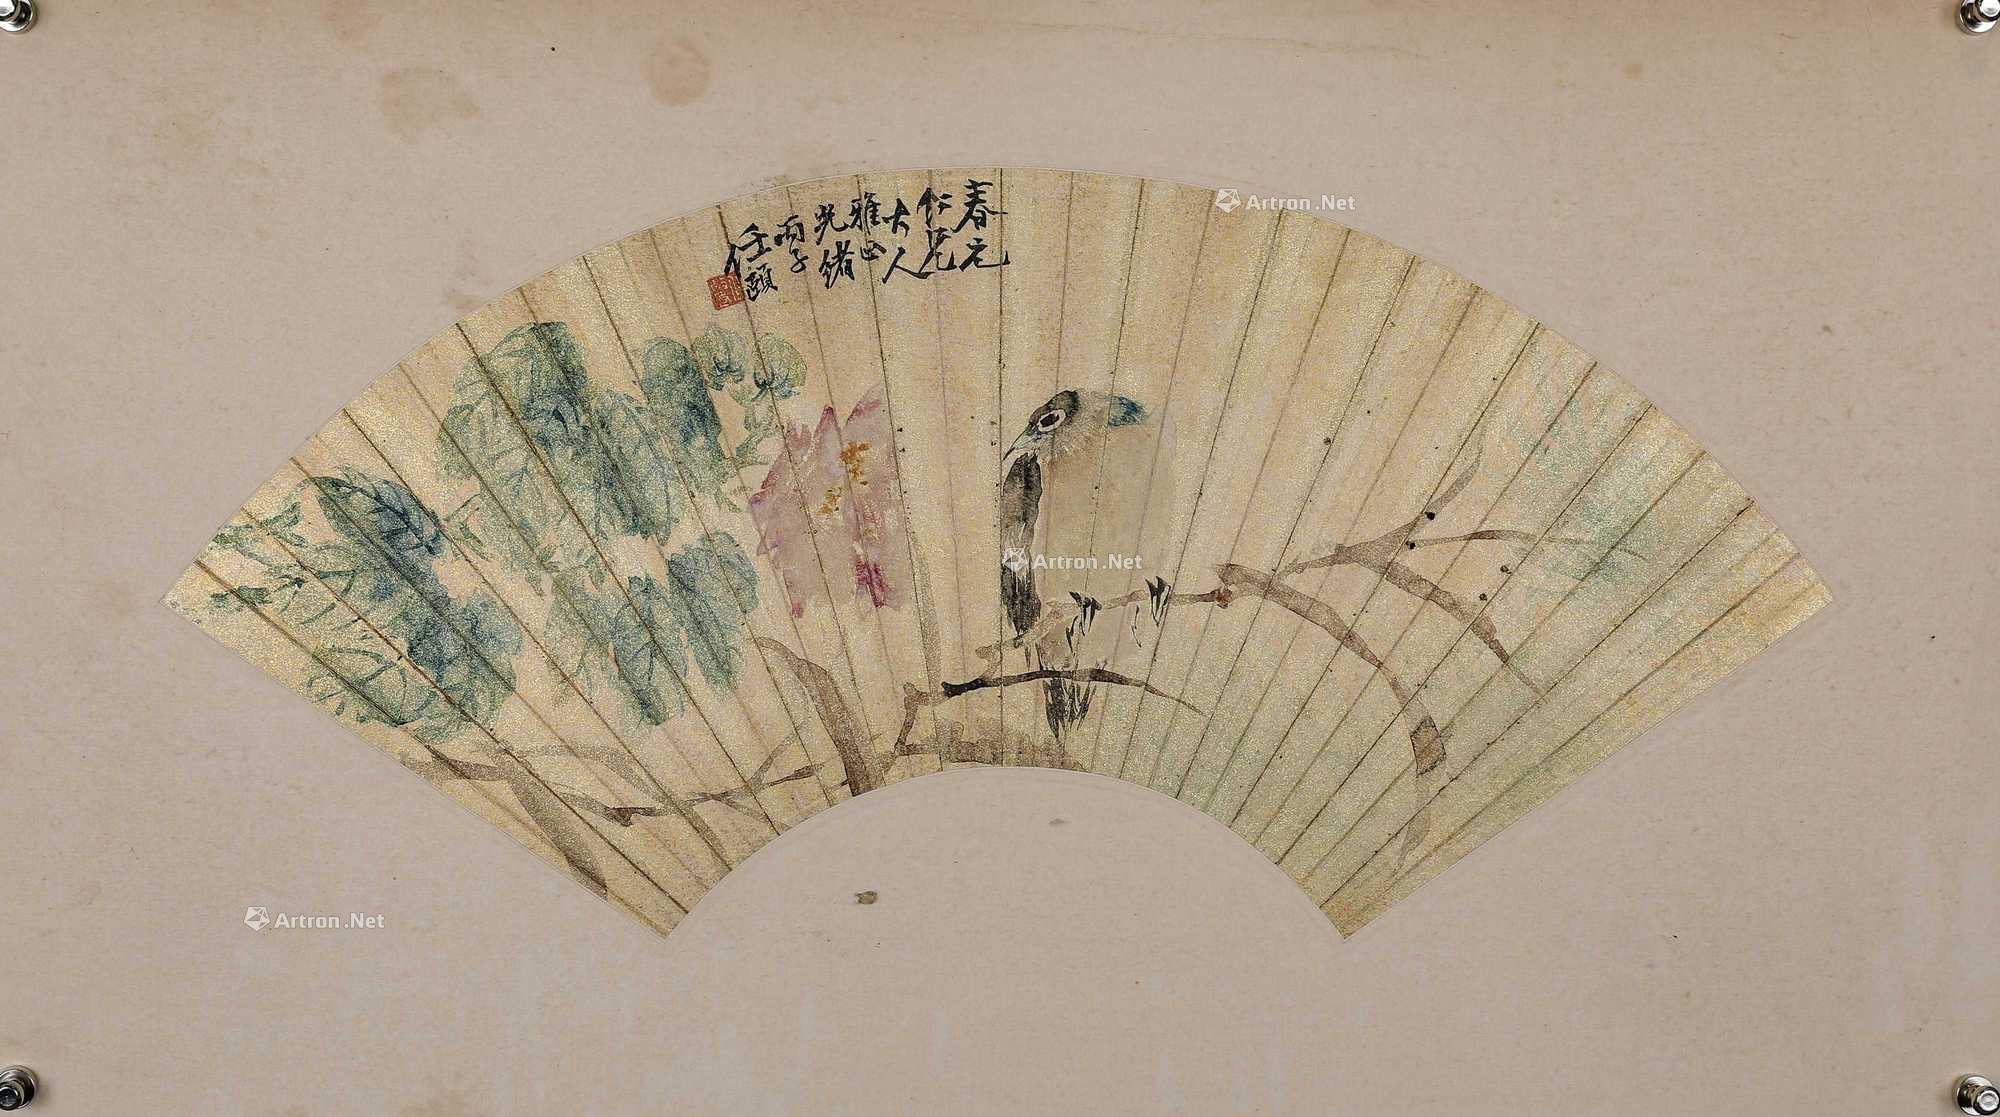 春元
仁兄
大人
雅正
光緒
丙子
任頤
Artron.Net
Artron.Net
Artron.Net